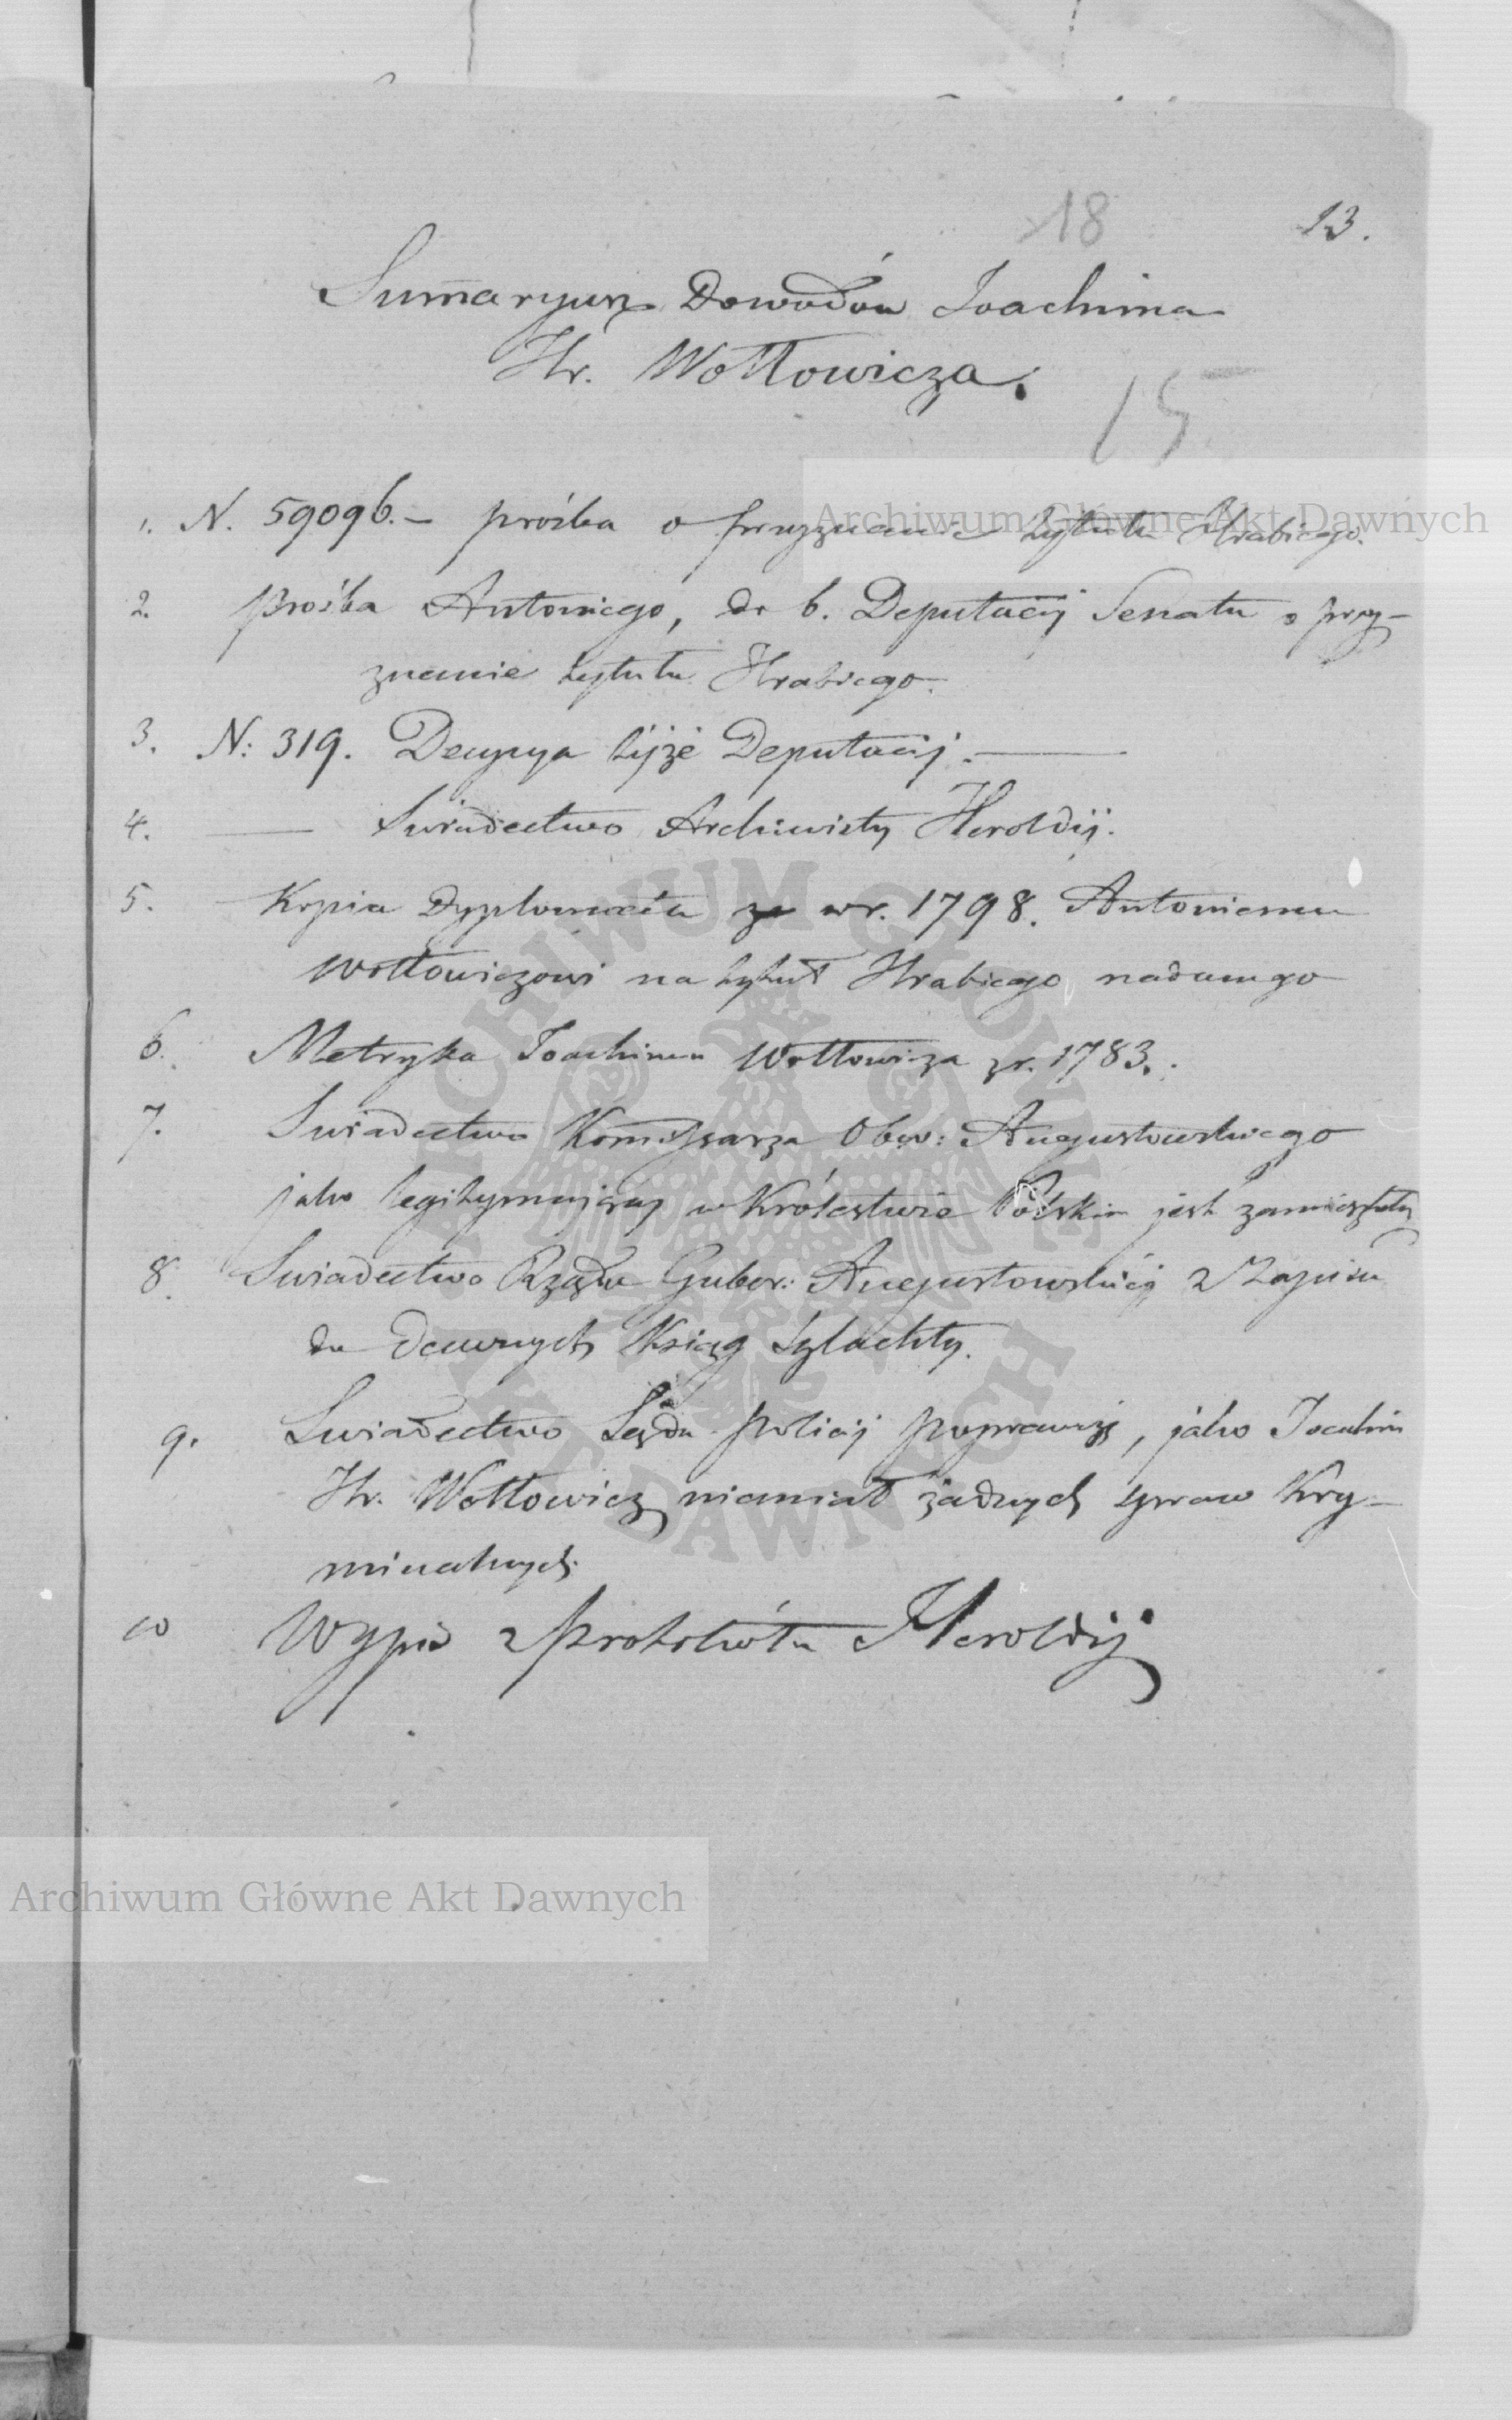 18 13.
Sumaryusz Dowodów Joachima
Hr. Wołłowicza.
15
1. N. 59096. – prośba o przyznanie tytułu Hrabiego.
2. prośba Antoniego, do b. Deputacij Senatu o przy-
znanie tytułu Hrabiego.
3. N: 319. Decyzya tejże Deputacij.
4. Swiadectwo Archiwisty Heroldij.
5. Kopia Dyplomatu w r. 1798. Antoniemu
Wołłowiczowi na tytuł Hrabiego nadanego
6. Metryka Joachima Wołłowicza z r. 1783.
7. Swiadectwo Kommissarza Obw: Augustowskiego
jako legitymujący w Królestwie Polskim jest zamieszkały
8. Swiadectwo Rządu Guber: Augustowskiej z Zapisu
do dawnych Ksiąg Szlachty.
9. Swiadectwo Sądu Policij poprawczej, jako Joachim
Hr. Wołłowicz niemiał żadnych spraw Kry-
minalnych.
10 Wypis z Protokółu Heroldij
Archiwum Główne Akt Dawnych
Archiwum Główne Akt Dawnych
ARCHIWUM GŁÓWNE AKT DAWNYCH